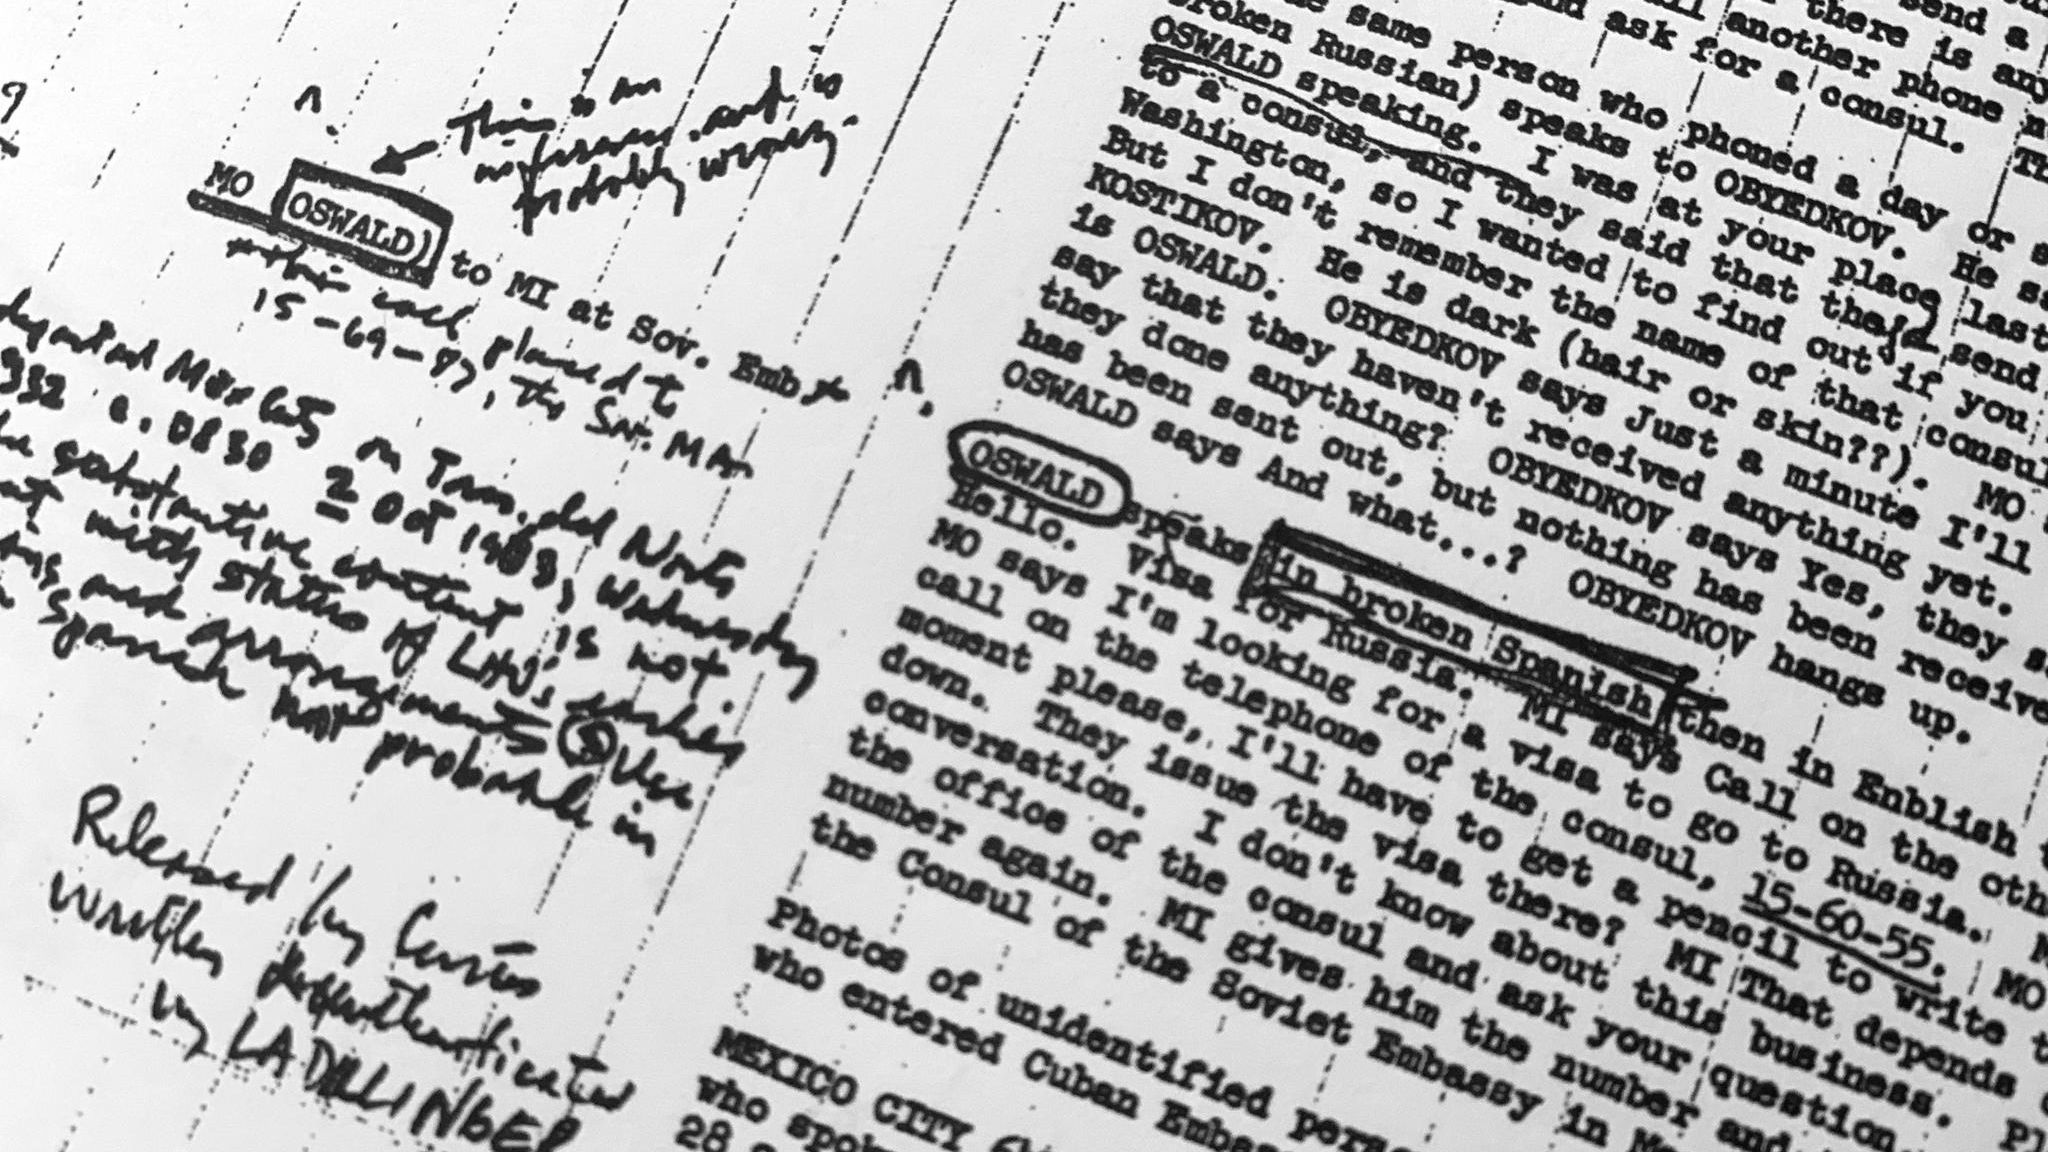 9
This is an
inference and is
probably wrong.
MO (OSWALD) to MI at Sov. Emb
this call placed to
15-69-87, the Sov. MA
departed Mex City on Trans. del Norte
332 @ 0830 2 Oct 1963, Wednesday
substantive content is not
with status of LHO's
arrangements Use
Spanish not probable in
Released by
written
by LA DILLINGER
send a
there is any
all another phone n
and ask for a consul. Th
same person who phoned a day or s
broken Russian) speaks to OBYEDKOV. He sa
OSWALD speaking. I was at your place last
to a consul, and they said that they'd send
Washington, so I wanted to find out if you
But I don't remember the name of that consul
KOSTIKOV. He is dark (hair or skin??). MO
is OSWALD. OBYEDKOV says Just a minute I'll
say that they haven't received anything yet.
they done anything? OBYEDKOV says Yes, they s
has been sent out, but nothing has been receive
OSWALD says And what...? OBYEDKOV hangs up.
OSWALD speaks in broken Spanish then in Enblish t
Hello. Visa for Russia. MI says Call on the oth
MO says I'm looking for a visa to go to Russia.
call on the telephone of the consul, 15-60-55. MO
moment please, I'll have to get a pencil to write t
down. They issue the visa there? MI That depends o
conversation. I don't know about this business. Pl
the office of the consul and ask your question.
number again. MI gives him the number and
the Consul of the Soviet Embassy in Me
Photos of unidentified perso
who entered Cuban Embas
MEXICO CITY
who spok
28